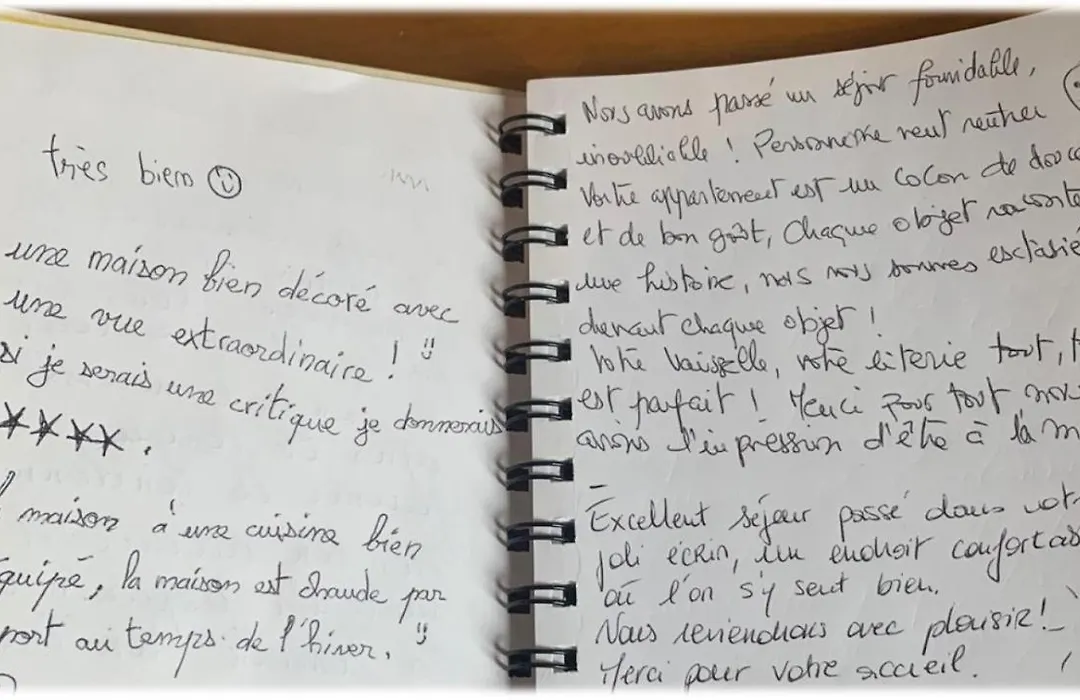 très bien
une maison bien décoré avec
une vue extraordinaire !
si je serais une critique je donnerais
****.
maison à une cuisine bien
quipé, la maison est chaude par
port au temps de l'hiver.
Nous avons passé un séjour formidable,
inoubliable ! Personne ne veut rentrer
Votre appartement est un cocon de douce
et de bon goût, Chaque objet raconte
une histoire, nous nous sommes extasié
devant chaque objet !
Votre vaisselle, votre literie tout, t
est parfait ! Merci pour tout nous
avions l'impression d'être à la m
Excellent séjour passé dans vot
joli écrin, un endroit confortab
où l'on s'y sent bien.
Nous reviendrons avec plaisir !
Merci pour votre accueil.